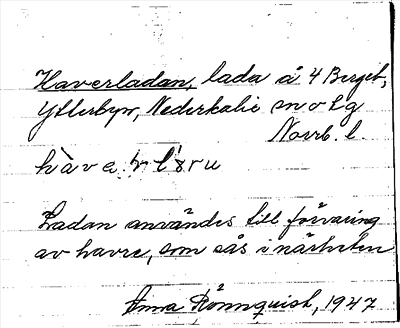 Haverladan, lada å 4 Berget,
Ytterbyn, Nederkalix sn o tg
Norrb. l.
Ladan användes till förvaring
av havre, som sås i närheten
Anna Rönnquist, 1947